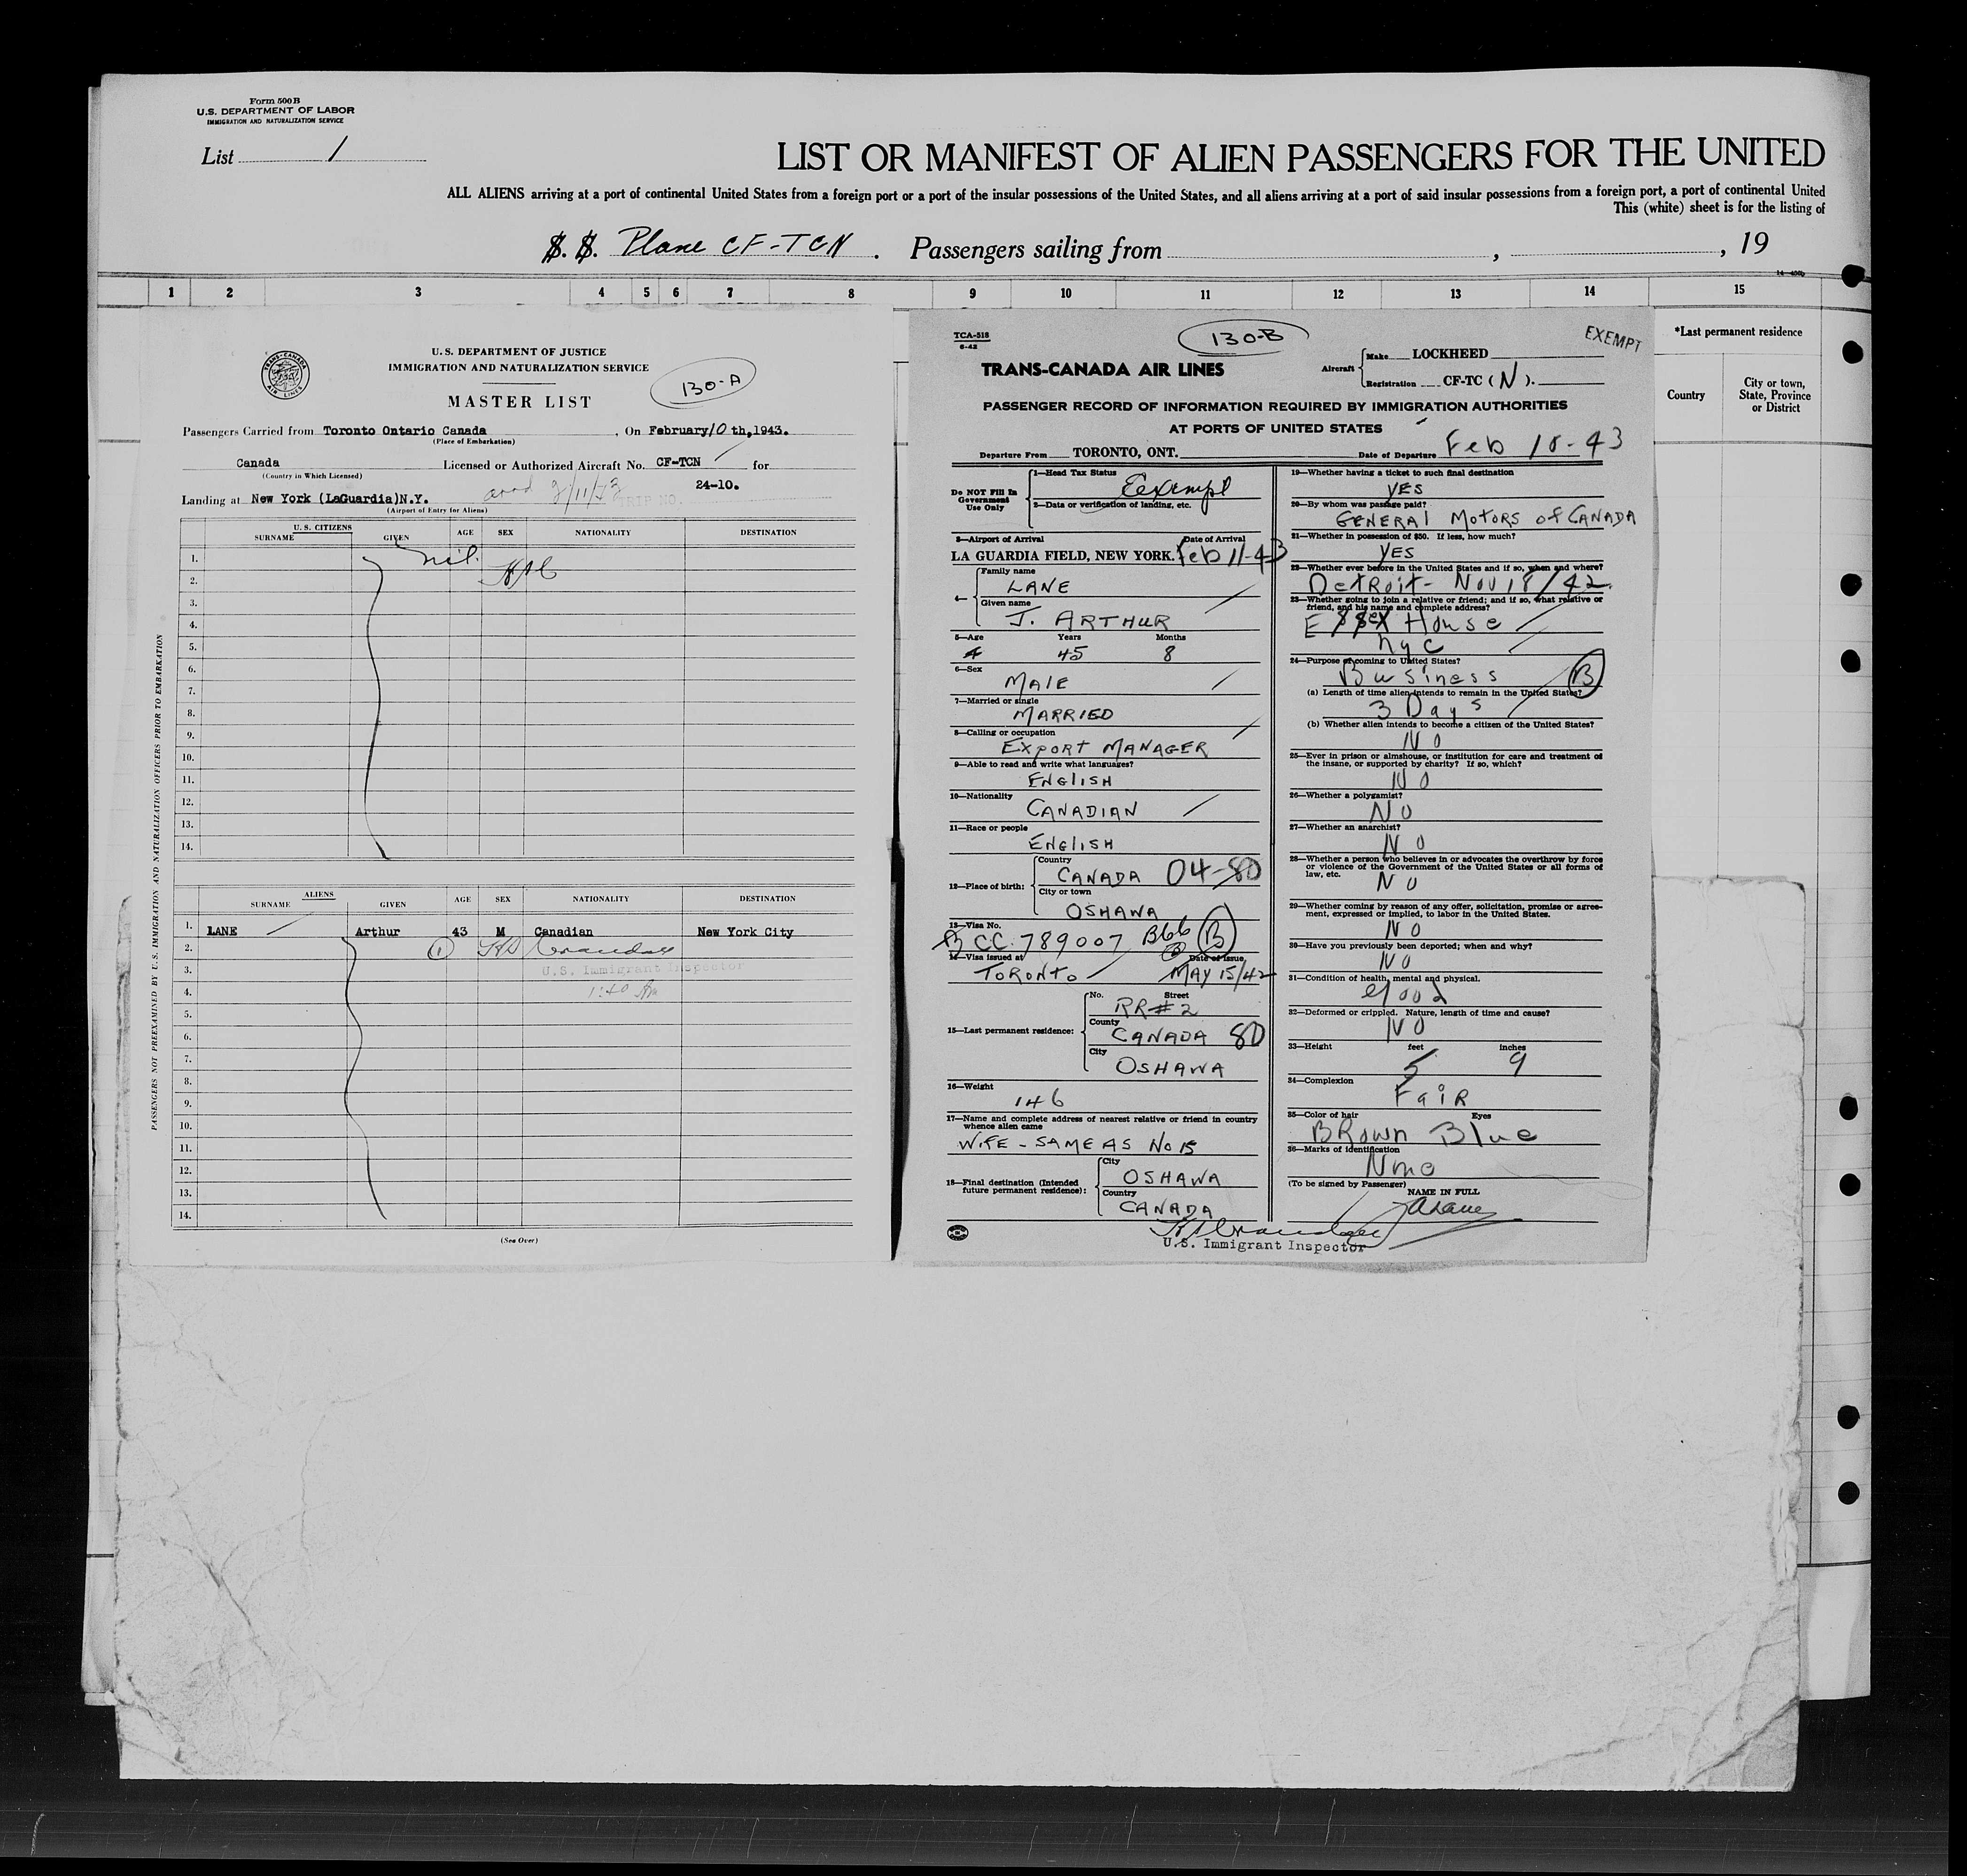 Form 500B
U.S. DEPARTMENT OF LABOR
IMMIGRATION AND NATURALIZATION SERVICE
List 1
LIST OR MANIFEST OF ALIEN PASSENGERS FOR THE UNITED
ALL ALIENS arriving at a port of continental United States from a foreign port or a port of the insular possessions of the United States, and all aliens arriving at a port of said insular possessions from a foreign port, a port of continental United
This (white) sheet is for the listing of
S.S. Plane CF-TCN . Passengers sailing from , , 19
1 2 3 4 5 6 7 8 9 10 11 12 13 14 15
*Last permanent residence
Country
City or town, State, Province or District
TRANS-CANADA AIR LINES
U.S. DEPARTMENT OF JUSTICE
IMMIGRATION AND NATURALIZATION SERVICE
130-A
MASTER LIST
Passengers Carried from Toronto Ontario Canada , On February 10 th,1943.
(Place of Embarkation)
Canada Licensed or Authorized Aircraft No. CF-TCN for
(Country in Which Licensed)
24-10.
Landing at New York (LaGuardia)N.Y. arrd 2/11/43 TRIP NO.
(Airport of Entry for Aliens)
U.S. CITIZENS
SURNAME GIVEN AGE SEX NATIONALITY DESTINATION
1. nil
2.
3.
4.
5.
6.
7.
8.
9.
10.
11.
12.
13.
14.
ALIENS
SURNAME GIVEN AGE SEX NATIONALITY DESTINATION
1. LANE Arthur 43 M Canadian New York City
2. 1
3. U.S. Immigrant Inspector
4.
5.
6.
7.
8.
9.
10.
11.
12.
13.
14.
(See Over)
PASSENGERS NOT PREEXAMINED BY U.S. IMMIGRATION AND NATURALIZATION OFFICERS PRIOR TO EMBARKATION
TCA-518
6-42
130-B
EXEMPT
TRANS-CANADA AIR LINES
Aircraft Make LOCKHEED
Registration CF-TC (N).
PASSENGER RECORD OF INFORMATION REQUIRED BY IMMIGRATION AUTHORITIES
AT PORTS OF UNITED STATES
Departure From TORONTO, ONT. Date of Departure Feb 10-43
Do NOT Fill In Government Use Only
1—Head Tax Status Exempt
2—Data or verification of landing, etc.
3—Airport of Arrival Date of Arrival
LA GUARDIA FIELD, NEW YORK. Feb 11-43
4— Family name
LANE
Given name
J. ARTHUR
5—Age Years Months
45 8
6—Sex
MALE
7—Married or single
MARRIED
8—Calling or occupation
EXPORT MANAGER
9—Able to read and write what languages?
ENGLISH
10—Nationality
CANADIAN
11—Race or people
ENGLISH
12—Place of birth: Country
CANADA 04-80
City or town
OSHAWA
13—Visa No.
B CC. 789007 B66 B
14—Visa issued at Date of issue
TORONTO MAY 15/42
15—Last permanent residence: No. Street
RR#2
County
CANADA 80
City
OSHAWA
16—Weight
146
17—Name and complete address of nearest relative or friend in country whence alien came
WIFE - SAME AS No 15
18—Final destination (Intended future permanent residence): City
OSHAWA
Country
CANADA
U.S. Immigrant Inspector
19—Whether having a ticket to such final destination
YES
20—By whom was passage paid?
GENERAL MOTORS of CANADA
21—Whether in possession of $50. If less, how much?
YES
22—Whether ever before in the United States and if so, when and where?
DETROIT - NOV 18/42.
23—Whether going to join a relative or friend; and if so, what relative or friend, and his name and complete address?
Essex House
nyc
24—Purpose of coming to United States?
Business B
(a) Length of time alien intends to remain in the United States?
3 Days
(b) Whether alien intends to become a citizen of the United States?
NO
25—Ever in prison or almshouse, or institution for care and treatment of the insane, or supported by charity? If so, which?
NO
26—Whether a polygamist?
NO
27—Whether an anarchist?
NO
28—Whether a person who believes in or advocates the overthrow by force or violence of the Government of the United States or all forms of law, etc.
NO
29—Whether coming by reason of any offer, solicitation, promise or agreement, expressed or implied, to labor in the United States.
NO
30—Have you previously been deported; when and why?
NO
31—Condition of health, mental and physical.
good
32—Deformed or crippled. Nature, length of time and cause?
NO
33—Height feet inches
5 9
34—Complexion
Fair
35—Color of hair Eyes
Brown Blue
36—Marks of identification
(To be signed by Passenger)
NAME IN FULL
JALane